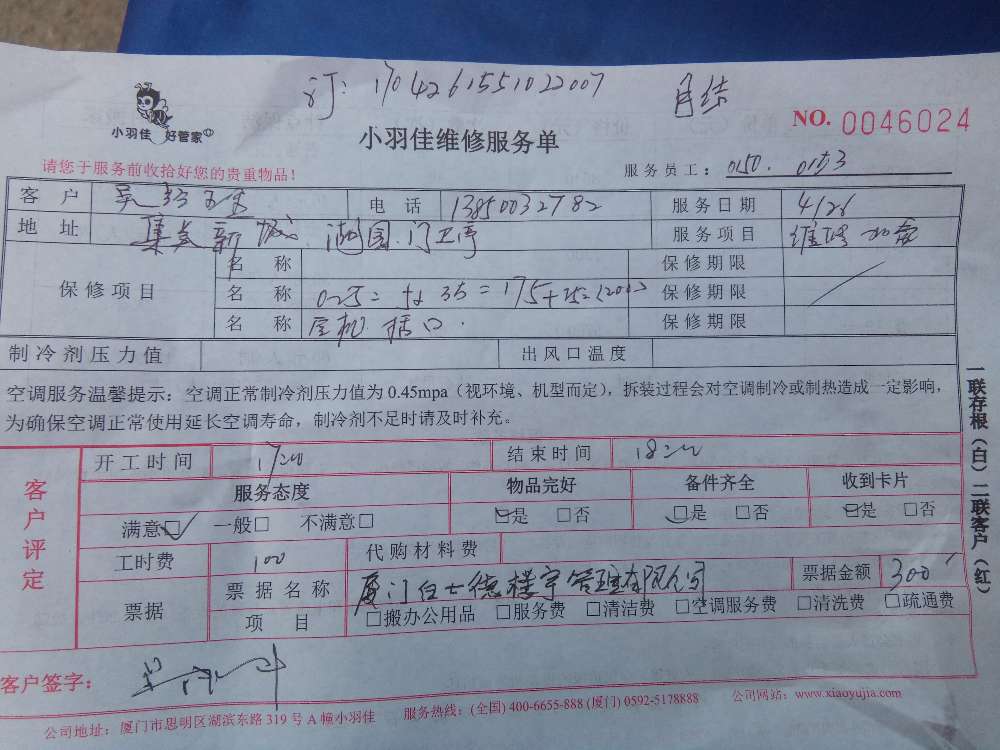 订：1704261551022007 月结
小羽佳 好管家
小羽佳维修服务单
NO. 0046024
请您于服务前收拾好您的贵重物品！
服务员工：0150.
客 户 电 话 13850032782 服务日期 4/26
地 址 集美新城 湖园.门卫亭 服务项目 维修
保修项目 名 称 保修期限
名 称 保修期限
名 称 保修期限
制冷剂压力值 出风口温度
空调服务温馨提示：空调正常制冷剂压力值为 0.45mpa（视环境、机型而定），拆装过程会对空调制冷或制热造成一定影响，
为确保空调正常使用延长空调寿命，制冷剂不足时请及时补充。
一联存根（白）二联客户（红）
客户评定
开工时间 结束时间
服务态度 物品完好 备件齐全 收到卡片
满意□ 一般□ 不满意□ □是 □否 □是 □否 □是 □否
工时费 100 代购材料费
票据 票据名称 厦门白士德楼宇管理有限公司 票据金额 300
项 目 □搬办公用品 □服务费 □清洁费 □空调服务费 □清洗费 □疏通费
客户签字：
公司地址：厦门市思明区湖滨东路 319 号 A 幢小羽佳 服务热线：(全国) 400-6655-888 (厦门) 0592-5178888 公司网站：www.xiaoyujia.com